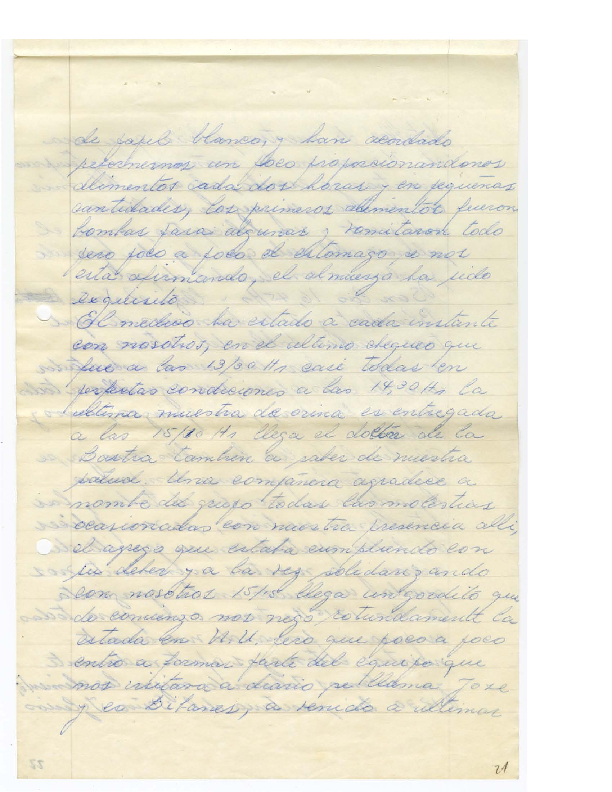 de papel blanco, y han acordado
reformernos un poco proporcionandonos
alimentos cada dos horas y en pequeñas
cantidades, los primeros alimentos fueron
bombas para algunas y vomitaron todo
pero poco a poco el estomago se nos
esta afirmando, el almuerzo ha sido
exquisito
El medico ha estado a cada instante
con nosotros, en el ultimo chequeo que
fue a las 13/30 Hs casi todas en
perfectas condiciones a las 14,30 Hs la
ultima muestra de orina es entregada
a las 15/10 Hs llega el doctor de la
tambien a saber de nuestra
salud. Una compañera agradice a
nombre del grupo todas las molestias
ocasionadas con nuestra presencia alli,
el agrego que estaba cumpliendo con
su deber y a la vez solidarizando
con nosotros 15/15 llega un gordito que
de comienzo nos nego rotundamente la
estada en N.U. pero que poco a poco
entro a formar parte del equipo que
nos visitara a diario, se llama Jose
y es a venido a ultimas
22
21